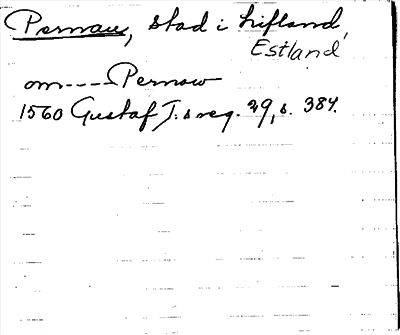 Pernau, stad i Lifland,
Estland
om----Pernow
1560 Gustaf I.s reg. 29, s. 384.